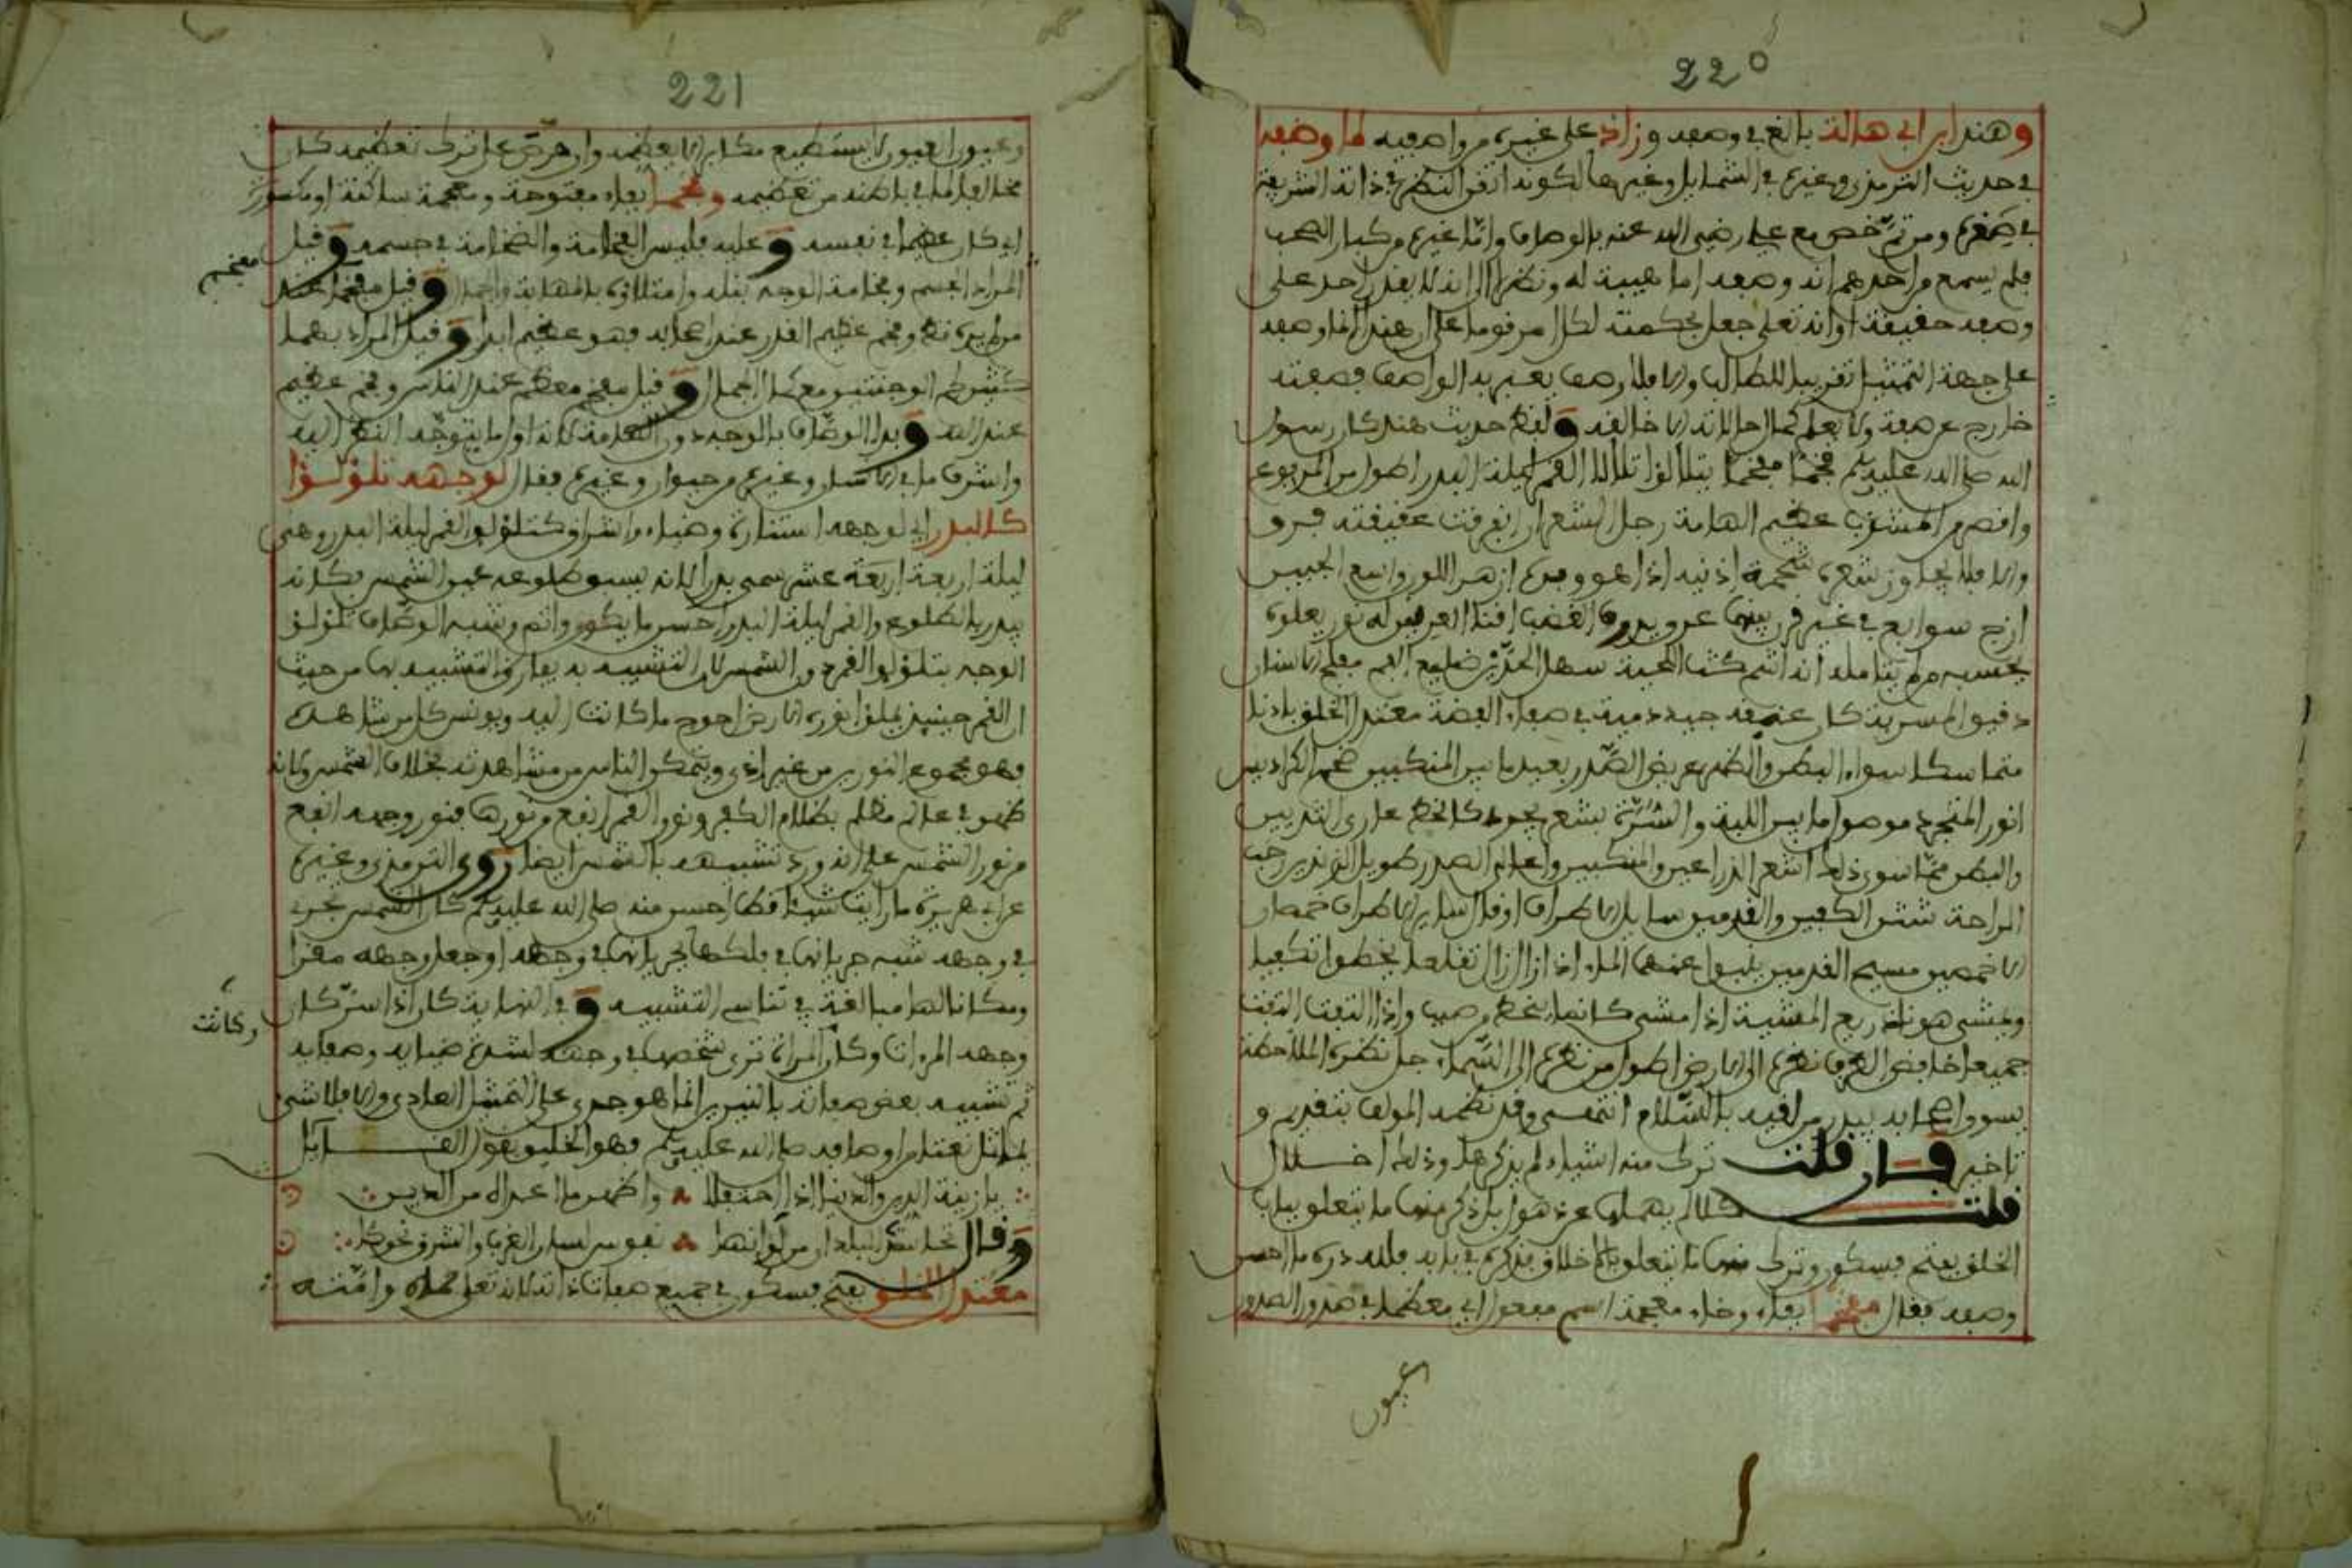 220
وهند ابن ابي هالة بالغ في وصفه وزاد على غيره من واصفيه لما وصفه
في حديث الترمذي وغيره في الشمايل وغيرها لكونه اتقن النظر في ذاته الشريفة
في صغره ومن ثم خص مع علي رضي الله عنه بالوصاف واما غيره من كبار الصحب
فلم يسمع من احدهم انه وصفه اما هيبة له ونظرا الى انه لا يقدر احد على
وصفه حقيقة او انه تعلى جعل بحكمته لكل مرفوما على ان هند انما وصفه
على جهة التمثيل تقريبا للطالب والا فلا وصف يعبر به الواصف فصفته
خارج عن صفته ولا يعلم كمال حاله الا خالقه ولفظ حديث هند كان رسول
الله صلى الله عليه وسلم فخما مفخما يتلألؤ تلألأ القمر ليلة البدر اطول من المربوع
واقصر من المشذب عظيم الهامة رجل الشعر ان انفرقت عقيقته فرق
والا فلا يجاوز شعره شحمة اذنيه اذا هو وفره ازهر اللون واسع الجبين
ازج سوابغ في غير قرن بينهما عرق يدره الغضب اقنا العرنين له نور يعلوه
يحسبه من لم يتامله انه اشم كث اللحية سهل الخدين ضليع الفم مفلج الاسنان
دقيق المسربة كان عنقه جيد دمية في صفاء الفضة معتدل الخلق بادنا
متماسكا سواء البطن والظهر عريض الصدر بعيد ما بين المنكبين ضخم الكراديس
انور المتجرد موصول ما بين اللبة والسرة بشعر يجري كالخط عاري الثديين
والبطن مما سوى ذلك اشعر الذراعين والمنكبين واعالي الصدر طويل الزندين رحب
الراحة شثن الكفين والقدمين سايل الاطراف او قال ساين الاطراف خمصان
الاخمصين مسيح القدمين ينبوا عنهما الماء اذا زال زال تقلعا يخطوا تكفيا
ويمشي هونا ذريع المشية اذا مشى كانما ينحط من صبب واذا التفت التفت
جميعا خافض الطرف نظره الى الارض اطول من نظره الى السماء جل نظره الملاحظة
يسوق اصحابه يبدر من لقيه بالسلام انتهى وقد نظمه المولف بتقديم و
تاخير فان قلت ترك منه اشياء لم يذكرها وذلك اخلال
قلت كلا لم يهملها عن ذهول بل ذكر منها ما يتعلق بباب
الخلق بفتح فسكون وترك منها ما يتعلق بالاخلاق فذكره في بابه فلله دره ما احسن
وصفه فقال مفخم بفاء وخاء معجمة اسم مفعول اي معظما في صدور الصدور
عيون
221
وعيون العيون لا يستطيع مكابر الا يعظمه وان حرص على ترك تعظيمه كان
مخالفا لما في باطنه من تعظيمه وفخما بفاء مفتوحة ومعجمة ساكنة او مكسورة
اي كان عظيما في نفسه وعليه فليس الفخامة والضخامة في جسمه وقيل
مفخم
المراد الجسم وفخامة الوجه نبله وامتلاؤه بالمهابة والجمال وقيل مفخما عند
من لم يره قط وفخم عظيم القدر عند اصحابه فهو عظيم ابدا وقيل المراد بهما
كثير لحم الوجنتين مع كمال الجمال وقيل مفخم معظم عند الناس وفخم عظيم
عند الله وبدا الوصاف بالوجه دون القامة لانه اول ما يتوجه النظر اليه
واشرف ما في الانسان وغيره من حيوان وغيره فقال لوجهه تلؤلؤا
كالبدر اي لوجهه استنارة وضياء واشراق كتلؤلؤ القمر ليلة البدر وهي
ليلة اربعة عشر سمي بدرا لانه يسبق طلوعه غيب الشمس فكانه
يبدر بالطلوع والقمر ليلة البدر احسن ما يكون واتم وشبه الوصاف تلؤلؤ
الوجه بتلؤلؤ القمر دون الشمس لان التشبيه به يفارق التشبيه بها من حيث
ان القمر حينيذ يملؤ نوره الارض احوج ما كانت اليه ويونس كل من شاهده
فهو مجموع النور من غير اذى ويتمكن الناس من مشاهدته بخلاف الشمس ولانه
ظهر في عالم مظلم بظلام الكفر ونور القمر انفع من نورها فنور وجهه انفع
من نور الشمس على انه ورد تشبيهه بالشمس ايضا روى الترمذي وغيره
عن ابي هريرة ما رايت شيئا قط احسن منه صلى الله عليه وسلم كان الشمس تجري
في وجهه شبه جريانها في فلكها بجريانها في وجهه او جعل وجهه مقرا
ومكانا لها مبالغة في تناسي التشبيه وفي النهاية كان اذا سر كان
وكانت
وجهه المرءاة وكان المراة ترى شخصها في وجهه لشدة ضيايه وصفايه
ثم تشبيه بعض صفاته بالنيرين انما هو جري على التمثيل العادي والا فلا شي
يماثل نعتا من اوصافه صلى الله عليه وسلم فهو الخليق بقول القايل
يا زينة الدين والدنيا اذا احتفلا واظهر ما اعدا من الدين
وقال
معتدل الخلق بفتح فسكون في جميع صفات ذاته لان تعلى حماه وامنه